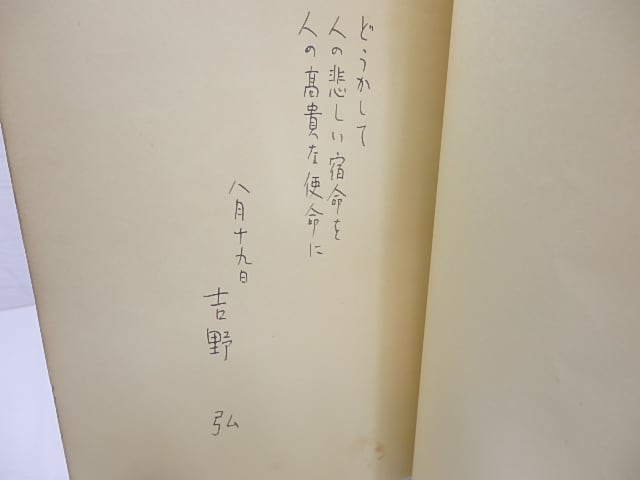 どうかして
人の悲しい宿命を
人の高貴な使命に
八月十九日
吉野 弘